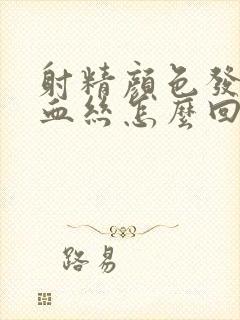 射精顏色發
血絲怎麼回
路易